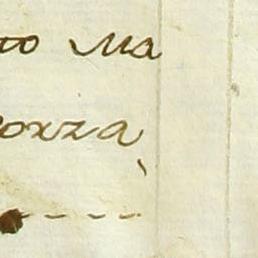 to Ma
orza